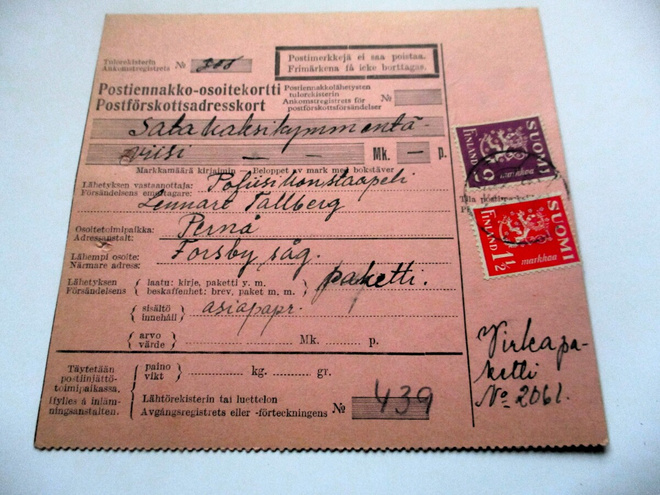 Tulorekisterin
Ankomstregistrets № 308
Postimerkkejä ei saa poistaa.
Frimärkena få icke borttagas.
Postiennakko-osoitekortti
Postförskottsadresskort
Postiennakkolähetysten
tulorekisterin
Ankomstregistrets för
postförskottsförsändelser
№
Satakaksikymmentä-
viisi — Mk. — p.
Markkamäärä kirjaimin Beloppet av mark med bokstäver
Lähetyksen vastaanottaja: Poliisikonstaapeli
Försändelsens emottagare:
Lennart Tallberg
Osoitetoimipaikka: Pernå
Adressanstalt:
Lähempi osoite: Forsby såg.
Närmare adress:
Lähetyksen laatu: kirje, paketti y. m. paketti.
Försändelsens beskaffenhet: brev, paket m. m.
sisältö asiapapr.
innehåll
arvo
värde Mk. p.
Täytetään
postiinjättö-
toimipaikassa.
Ifylles å inläm-
ningsanstalten.
paino
vikt kg. gr.
Lähtörekisterin tai luettelon
Avgångsregistrets eller -förteckningens № 439
SUOMI
FINLAND
2
markkaa
SUOMI
FINLAND
1½
markkaa
Virkapa-
ketti
No 2061.